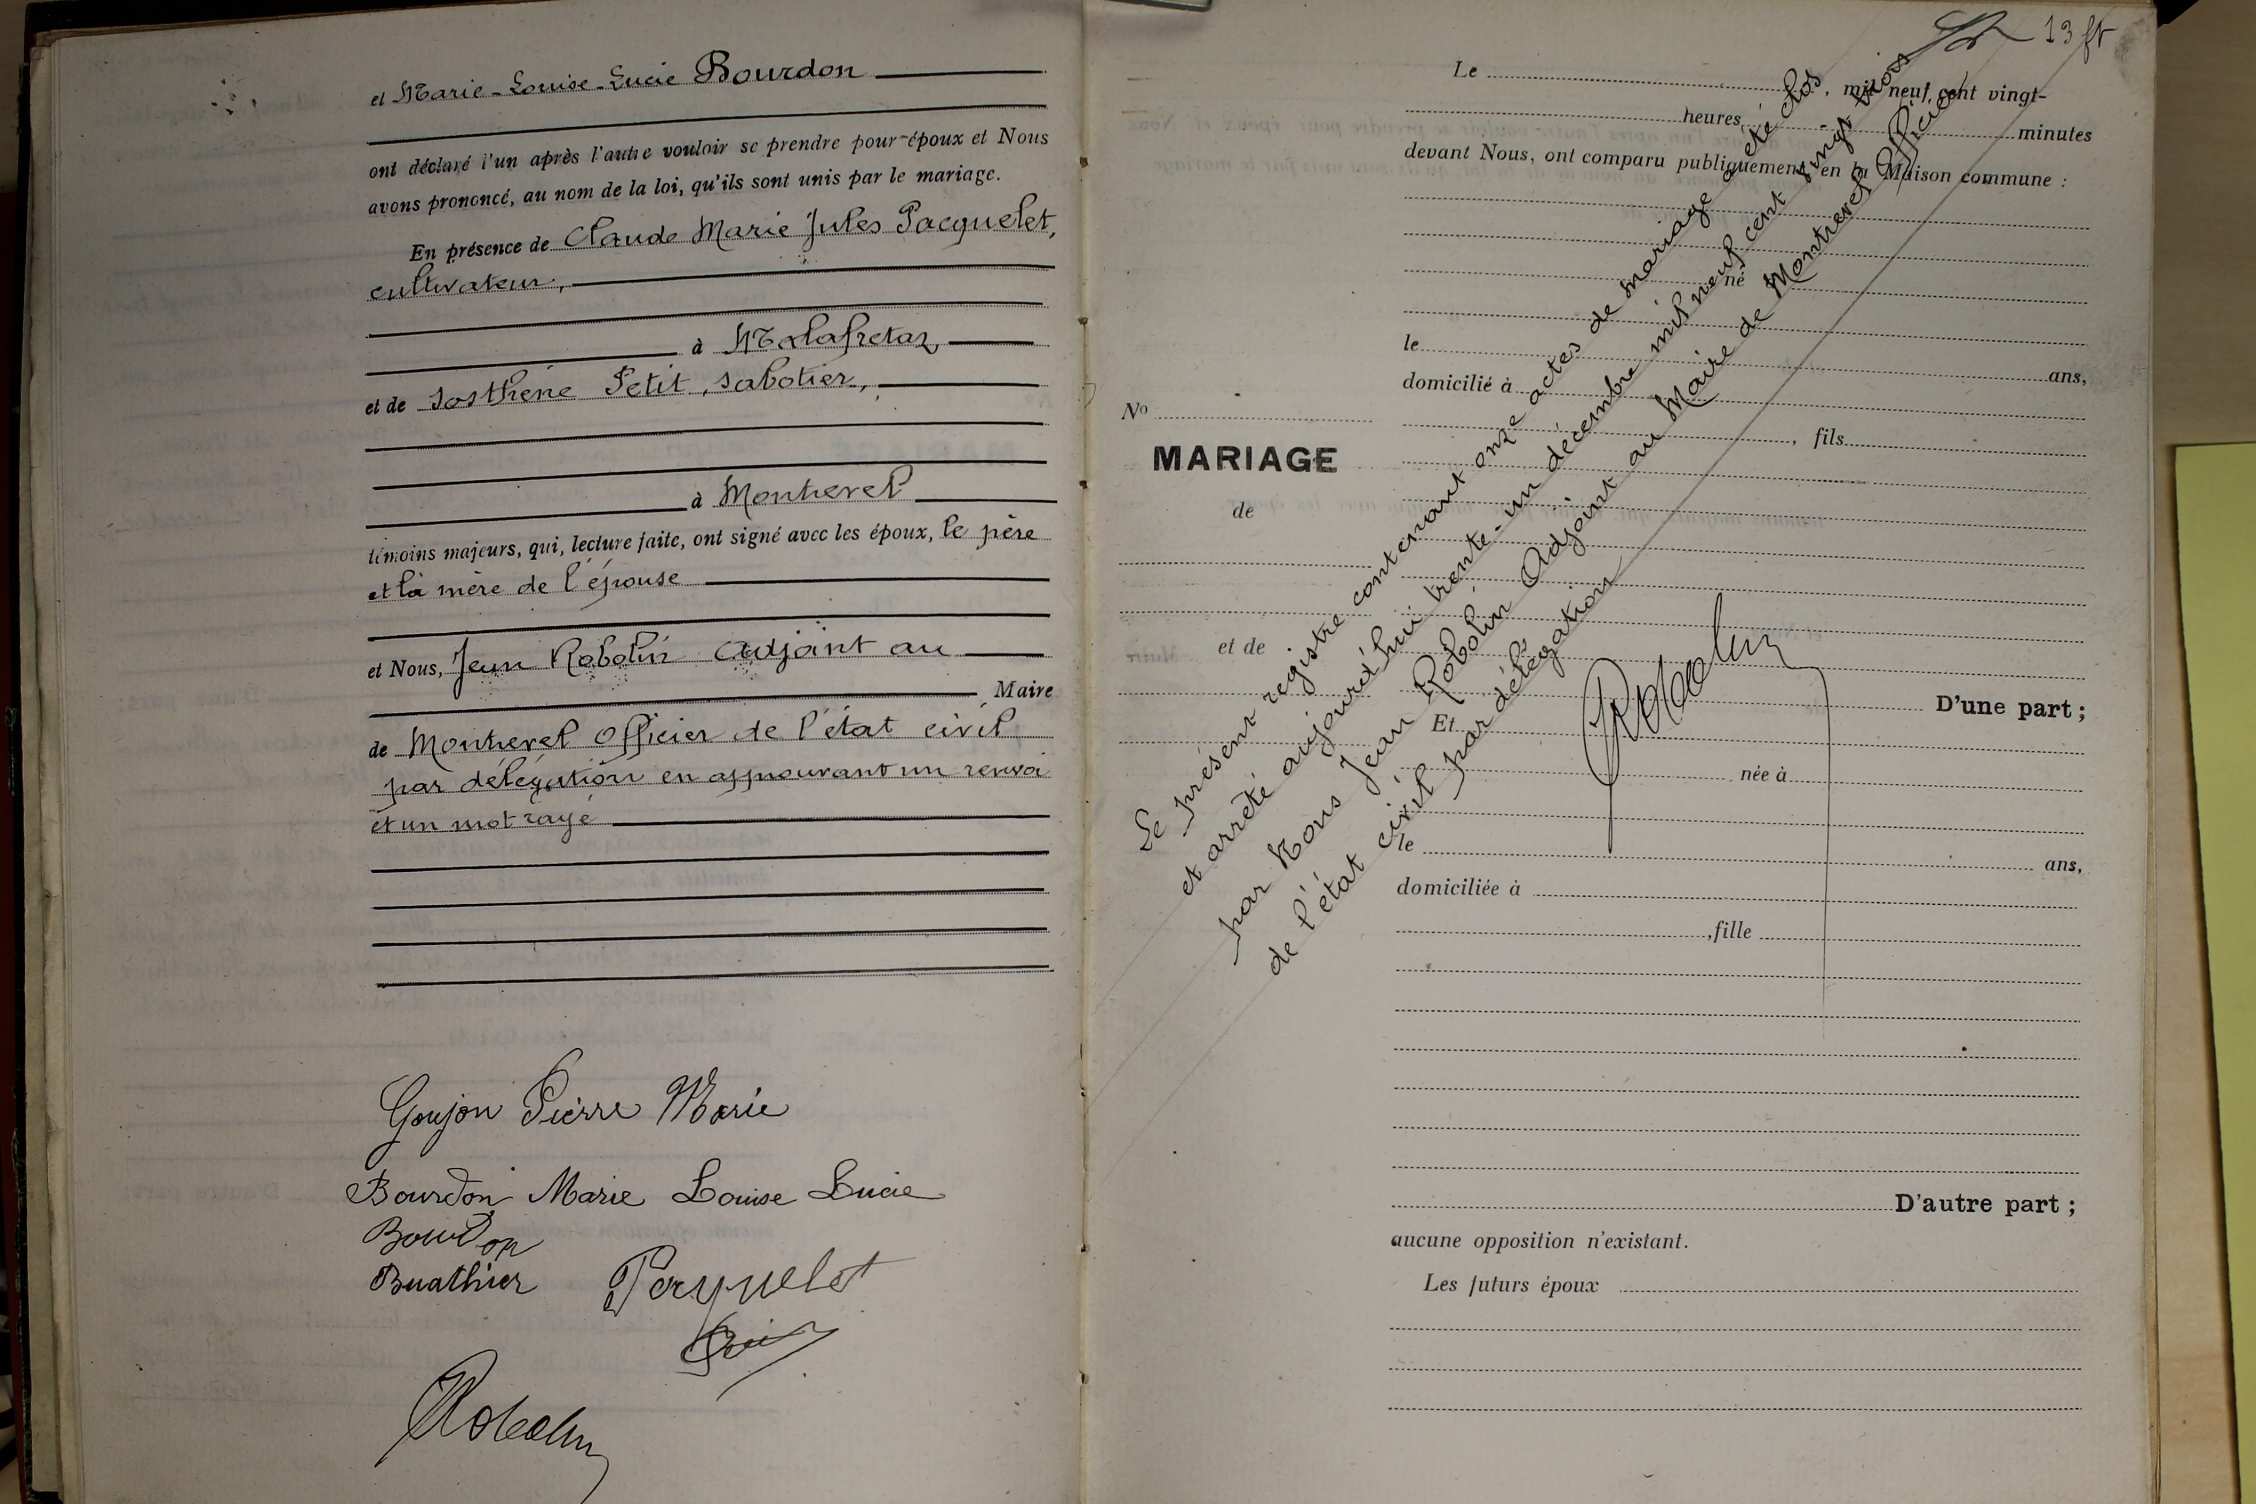 et Marie-Louise-Lucie Bourdon
ont déclaré l'un après l'autre vouloir se prendre pour époux et Nous
avons prononcé, au nom de la loi, qu'ils sont unis par le mariage.
En présence de Claude Marie Jules Pacquelet,
cultivateur,
à Malafretaz
et de Sosthène Petit, sabotier,
à Montrevel
témoins majeurs, qui, lecture faite, ont signé avec les époux, le père
et la mère de l'épouse
et Nous, Jean Robolin Adjoint au
Maire
de Montrevel Officier de l'état civil
par délégation en approuvant un renvoi
et un mot rayé
Goujon Pierre Marie
Bourdon Marie Louise Lucie
Bourdon
Buathier Pacquelet
Robolin
13
Le , mil neuf cent vingt-
heures, minutes
devant Nous, ont comparu publiquement en la Maison commune :
né
le ans,
domicilié à
, fils
No
MARIAGE
de
et de
D'une part ;
Et
née à
le ans,
domiciliée à
, fille
D'autre part ;
aucune opposition n'existant.
Les futurs époux
Le présent registre contenant onze actes de mariage a été clos
et arrêté aujourd'hui trente-un décembre mil neuf cent vingt trois
par Nous Jean Robolin Adjoint au Maire de Montrevel Officier
de l'état civil par délégation
Robolin